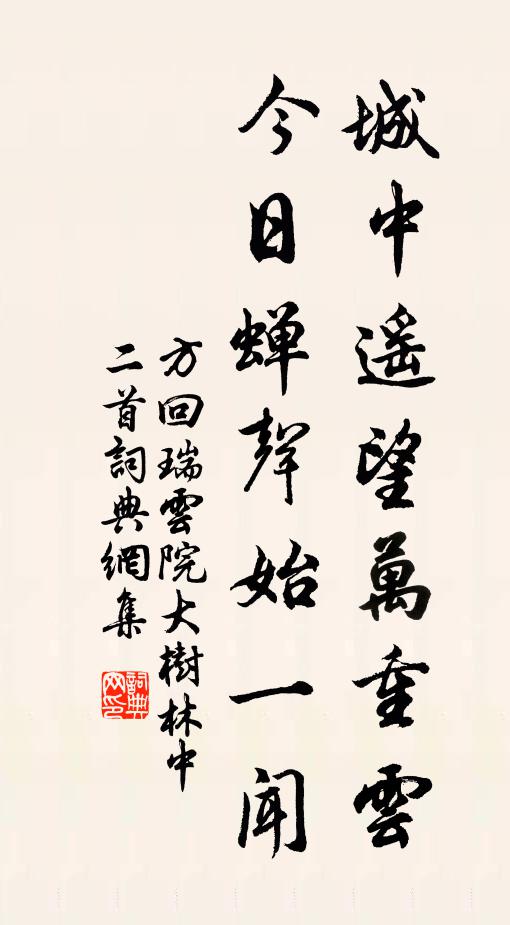 城中遥望萬重雲
今日蝉聲始一闻
方回瑞雲院大樹林中
二首詞典網集
詞典网印